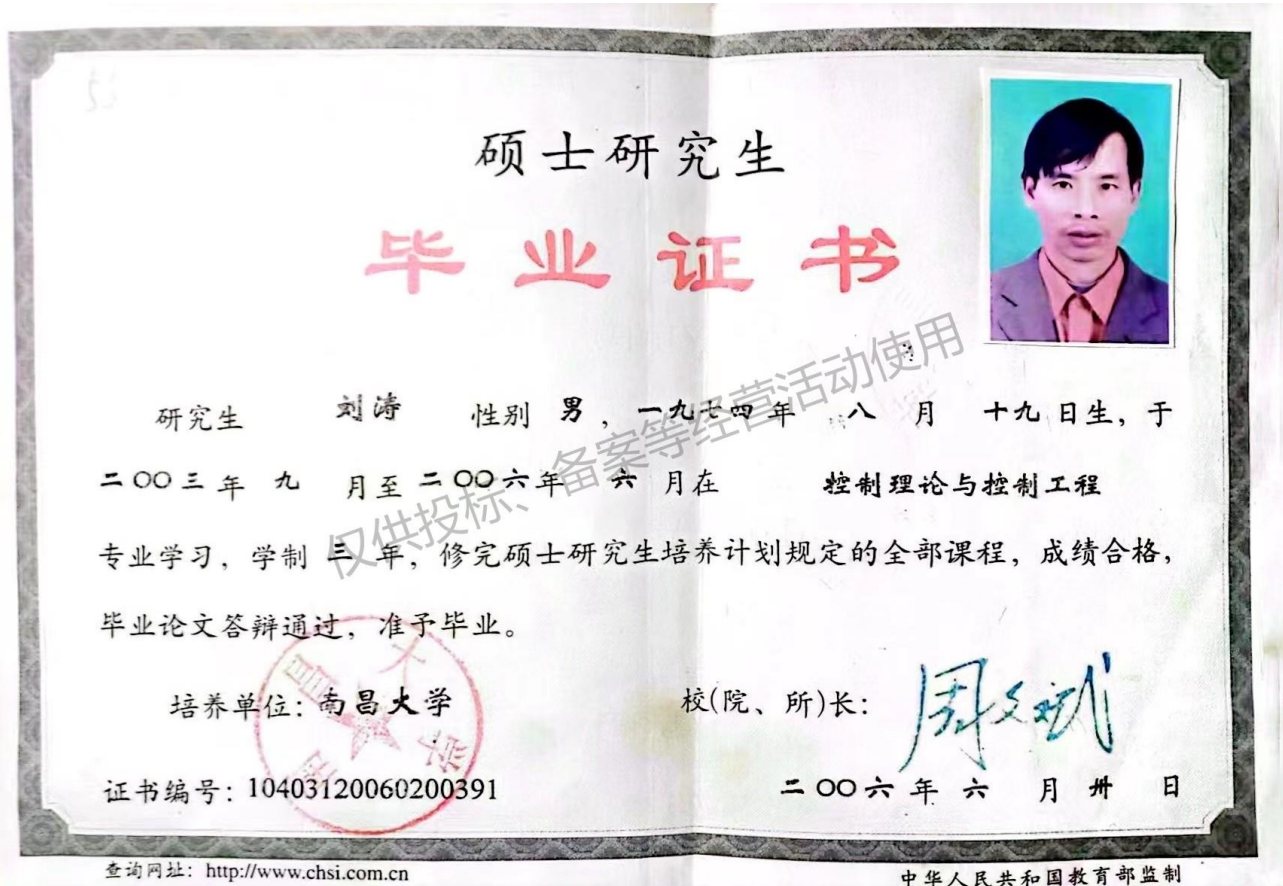 硕士研究生
毕业证书
研究生 刘涛 性别 男，一九七四年 八 月 十九日生，于
二〇〇三年 九 月至二〇〇六年 六 月在 控制理论与控制工程
专业学习，学制 三 年，修完硕士研究生培养计划规定的全部课程，成绩合格，
毕业论文答辩通过，准予毕业。
培养单位：南昌大学
校(院、所)长：周文斌
证书编号：10403120060200391
二〇〇六年 六 月 卅 日
查询网址：http://www.chsi.com.cn
中华人民共和国教育部监制
仅供投标、备案等经营活动使用
南昌大学